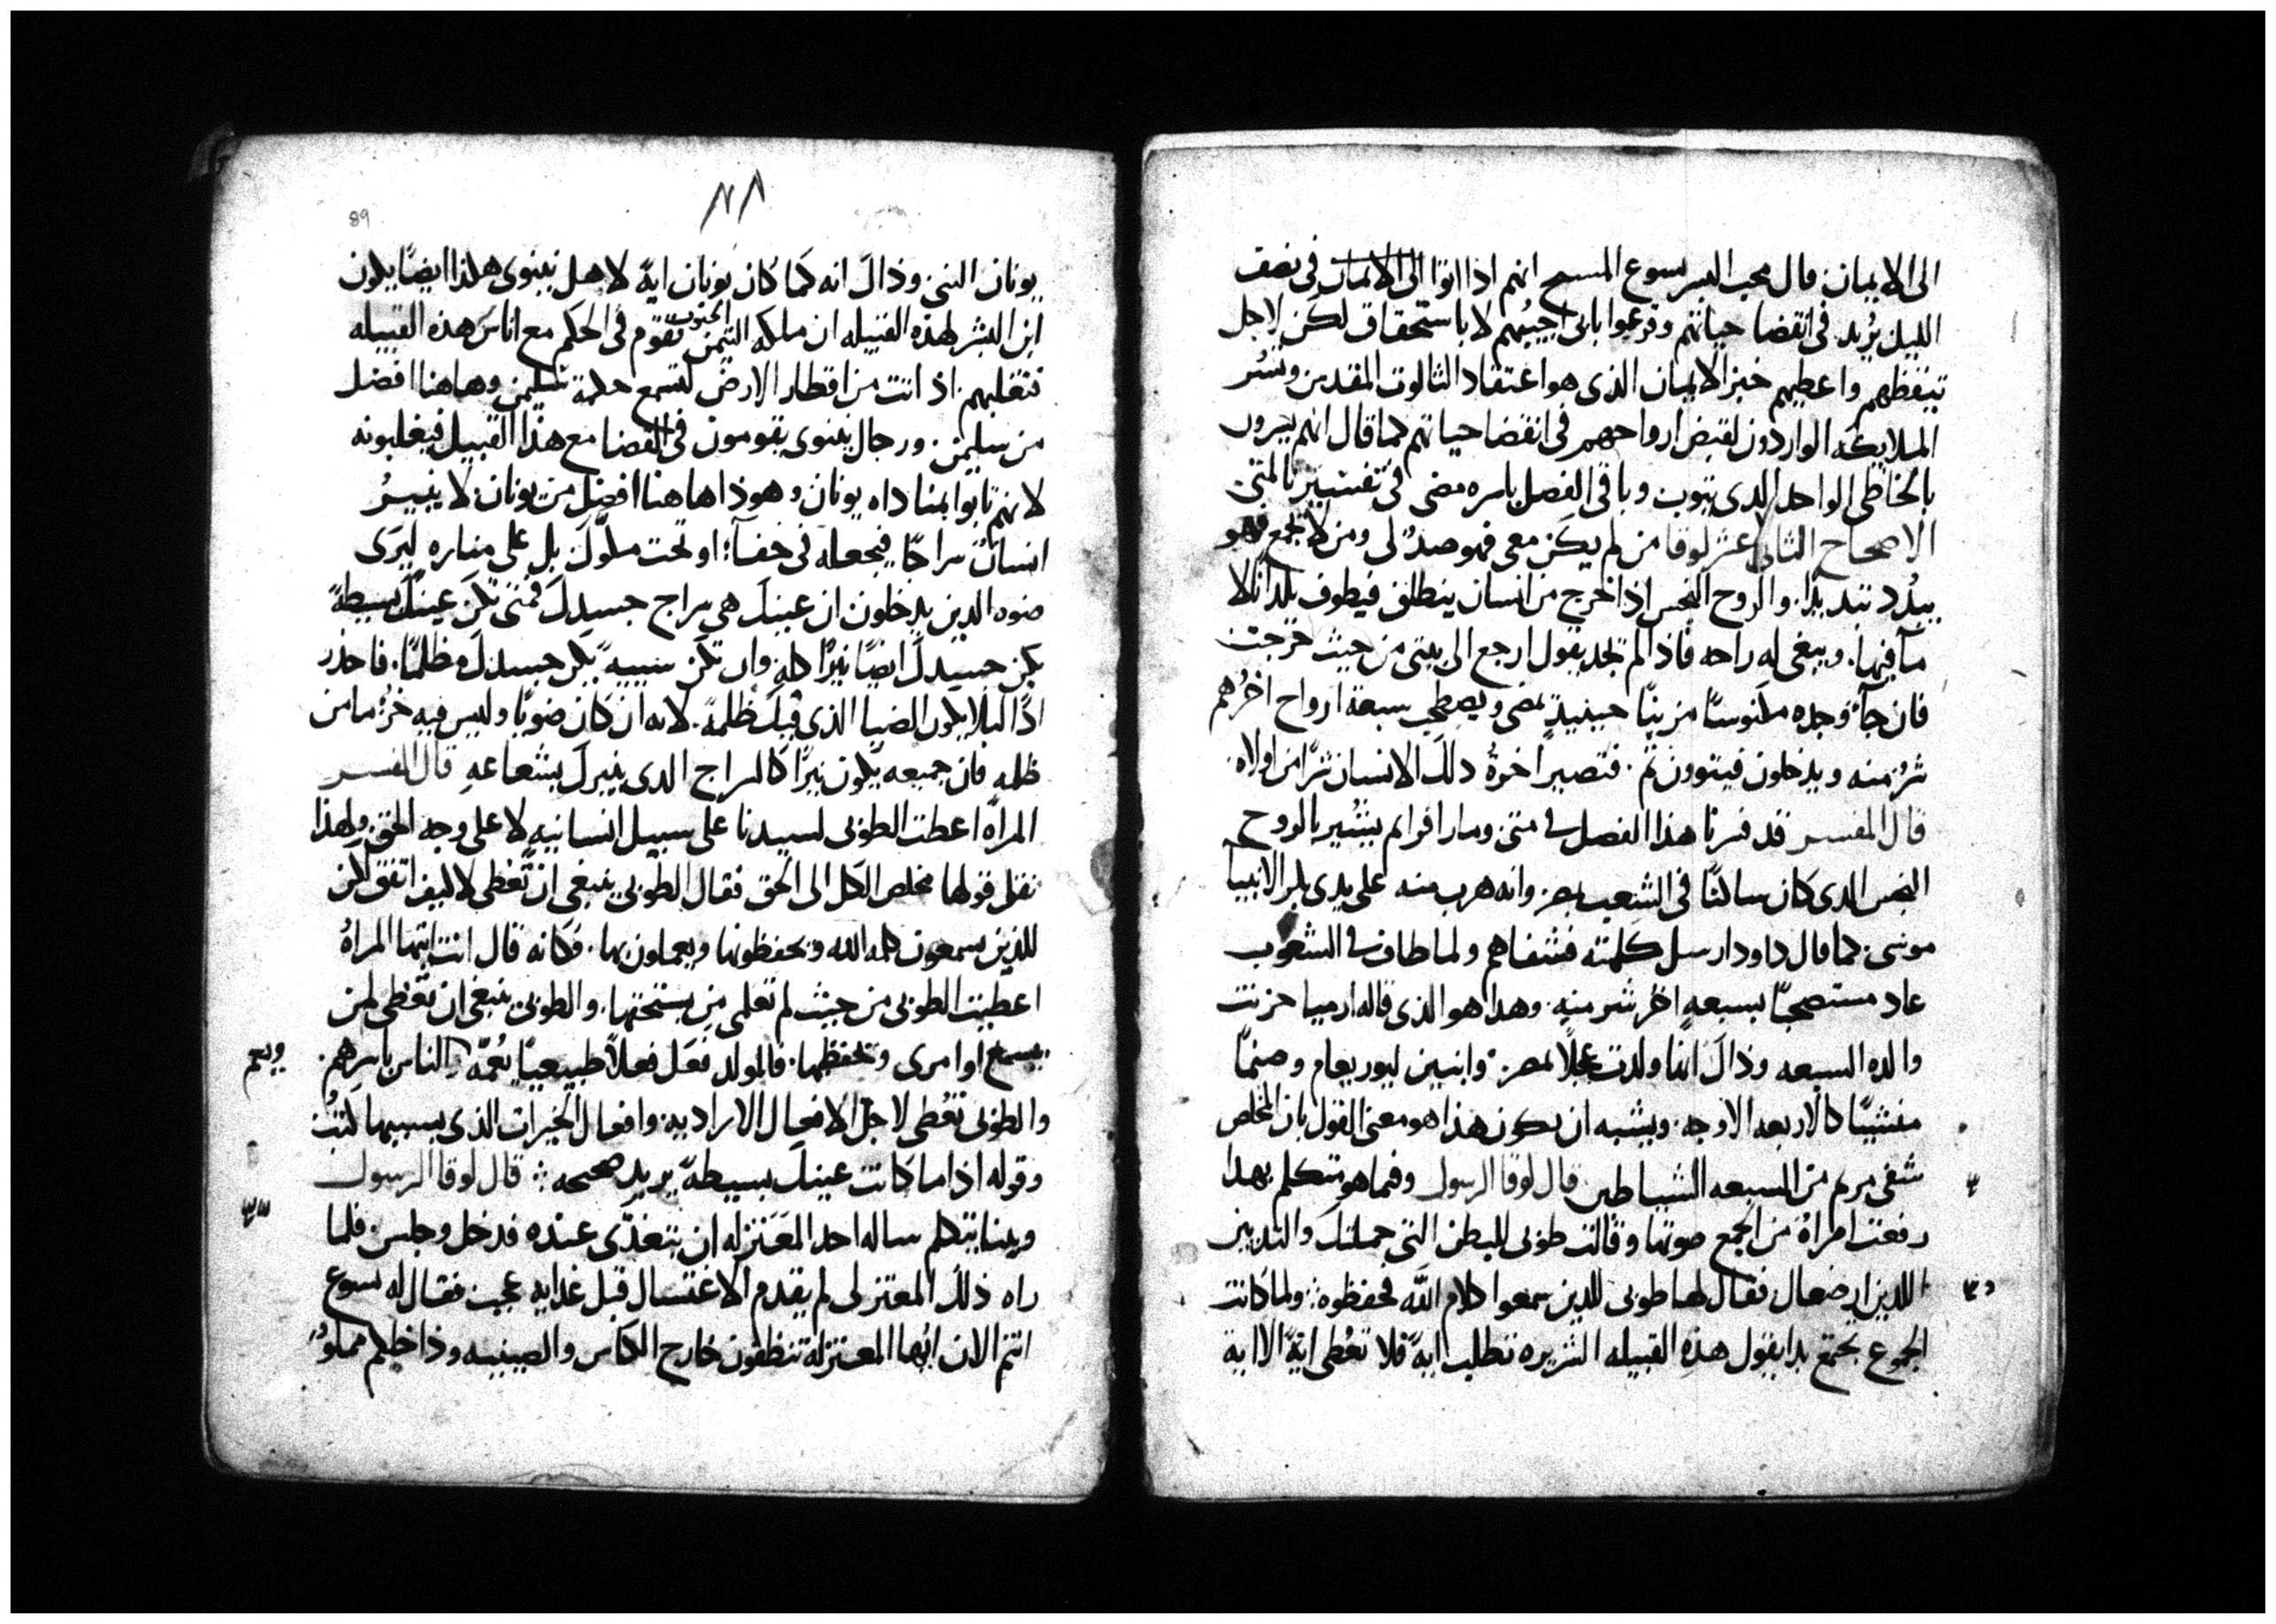 الى الايمان. قال محب البشر يسوع المسيح انهم اذا اتوا الى الايمان في نصف
الليل يُريد. في انقضا حياتهم وقرعوا بابى اجيبُهم لا باستحقاق لكن لاجل
تيقظهم واعطيهم خبز الايمان الذى هو اعتقاد الثالوت المقدس وتُسَر
الملايكه الواردون لقبض ارواحهم فى انقضا حياتهم كما قال انهم يسرون
بالخاطى الواحد الدى يتوب وباقى الفصل باسره مضى فى تفسير بالمتى
الاصحاح الثانى عشر لوقا من لم يكن معى فهو ضدٌ لى ومن لا يجمع فهو
يبدّد تبديدًا. والروح النجس اذا خرج من انسان ينطلق فيطوف بلدانًا لا
مآ فيها. ويبغى له راحه فاذا لم يجد يقول ارجع الى بيتى من حيث خرجت
فان جآ وجده مكنوسًا مزينًا حينيدٍ يمضى ويصطحب سبعة ارواح اخرُ هم
شرٌ منه ويدخلون فيتوون ثم. فتصير اخرةُ دلك الانسان شرًا من اولاه.
قال المفسر قد فسرنا هذا الفصل فى متى ومار افرام يشير بالروح
النجس الدى كان ساكنًا فى الشعب بمصر وانه هرب منه على يدى كبر الانبيآ
موسى. كما قال داود ارسل كلمته فشفاهم ولما طاف فى الشعوب
عاد مستصحبًا بسبعهٍ اخرُ شر منه. وهدا هو الذى قاله ارميا حزنت
والده السبعه وذاك انها ولدت عجلًا بمصر. وابنين ليوربعام وصنمًا
مفشيًا كالاربعه الاوجه. ويشبه ان يكون هذا هو معنى القول بان المخلص
شفى مريم من السبعه الشياطين قال لوقا الرسول وفيما هو متكلم بهدا
رفعت امراةٌ من الجمع صوتها وقالت طوبى للبطن التى حملتك والثديين
اللدين ارضعاك فقال لها طوبى للدين سمعوا كلام اللّه فحفظوه: ولما كانت
الجموع تجتمع بدا يقول هذه القبيله الشريره تطلب ايةً فلا تعُطى ايةً الا اية
٨٨
89
يونان النبى وذاك انه كما كان يونان ايةً لاهل نينوى هكذا ايضًا يكون
ابن البشر لهذه القبيله ان ملكه التيمن الجنوب تقوم فى الحكم مع اناس هذه القبيله
فتغلبهم. اذ اتت من اقطار الارض لتسمع حكمة سليمن وهاهنا افضل
من سليمن. ورجال نينوى يقومون فى القضا مع هذا القبيل فيغلبونه
لانهم تابوا بمناداه يونان وهوذا هاهنا افضل من يونان. لا ينيـرُ
انسان سراجًا فيجعله فى خفآ؛ او تحت ملّوك بل على مناره ليرى
ضوه الدين يدخلون ان عينك هى سراج جسدك فمتى تكن عينك بسيطةً
يكن جسدك ايضًا نيرًا كله وان تكن سييه يكن جسدك مظلمًا. فاحذر
اذًا ليلا يكون الضيا الذى فيك ظلمة. لانه ان كان ضويًا وليس فيه جزٌ ما من
ظلمه فان جميعه يكون نيرًا كالسراج الدى ينيرك بشعاعه قال المفسر
المراه اعطت الطوبى لسيدنا على سبيل انسانيه لا على وجه الحق ولهذا
نقل قولها مخلص الكل الى الحق فقال الطوبى ينبغى ان تُعطى لا كيف اتفق لكن
للذين يسمعون كلمه الله ويحفظونها ويعملون بها. فكانه قال انت ايتها المراةُ
اعطيت الطوبى من حيث لم تعلمى من يستحقها. والطوبى ينبغى ان تعُطى لمن
يسمع اوامرى ويحفظها. فالمولد فعل فعلًا طبيعيًا يُعمّه الناس باسرهم.
ويعم
والطوبى تعُطى لاجل الافعال الاراديه وافعال الخيرات الذى بسببها كتبُت
وقوله اذا ما كانت عينك بسيطةً يريد صحيحه: قال لوقا الرسول
وبينا يتكلم ساله احد المعَتزله ان يتغدّى عنده فدخل وجلس. فلما
راه ذلك المعتزلى لم يقدم الاغتسال قبل غدايه عجب فقال له يسوع
انتم الان ايُها المعتزله تنظفون خارج الكاس والصينيه وذاخلكم مملوٌ